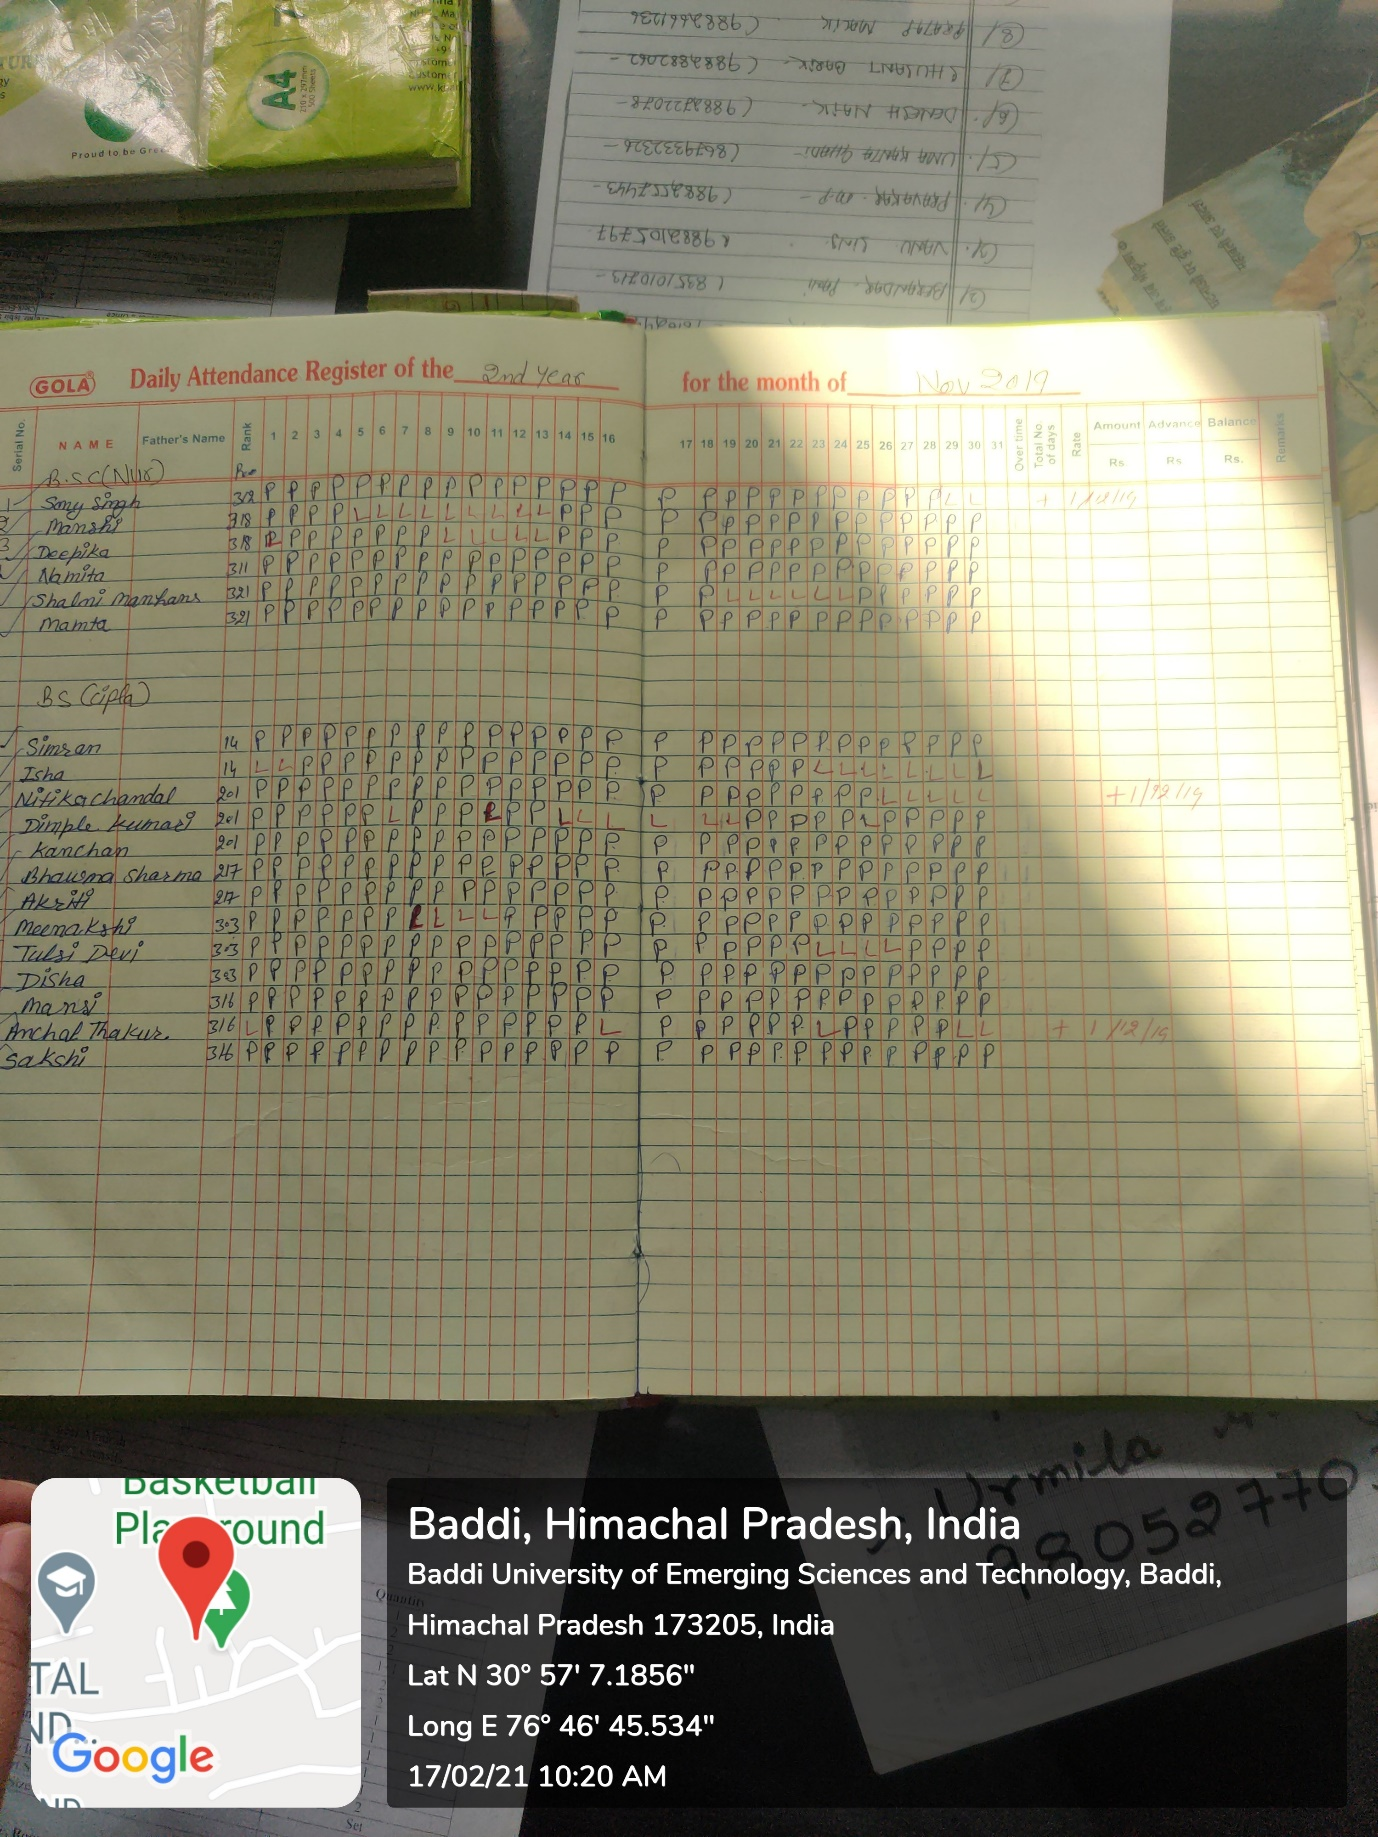 A4
210 x 297mm
500 Sheets
Proud to be Gree
(8) PRATAP MALIK (9882661236
(7)
(6) DENESH NAIK - (9882722078-
(5) (8679332326-
(4) (9882557443-
(3) 9882105797
(2) (8351010713-
GOLA Daily Attendance Register of the 2nd Year for the month of Nov 2019
Serial No. NAME Father's Name Rank 1 2 3 4 5 6 7 8 9 10 11 12 13 14 15 16 17 18 19 20 21 22 23 24 25 26 27 28 29 30 31 Over time Total No. of days Rate Amount Advance Balance Remarks
Rs Rs Rs.
B.SC(Nur)
1 Somy Singh 318 P P P P P P P P P P P P P P P P P P P P P P P P P P P P L L + 1/12/19
2 Manshi 318 P P P P L L L L L L L L L P P P P P P P P P P P P P P P P P
3 Deepika 318 P P P P P P P P L L L L L P P P P P P P P P P P P P P P P P
Namita 311 P P P P P P P P P P P P P P P P P P P P P P P P P P P P P P
Shalni Manhans 321 P P P P P P P P P P P P P P P P P P L L L L L L P P P P P P
Mamta 321 P P P P P P P P P P P P P P P P P P P P P P P P P P P P P P
BS (cipla)
Simran 14 P P P P P P P P P P P P P P P P P P P P P P P P P P P P P
Isha 14 L L P P P P P P P P P P P P P P P P P P P P L L L L L L L L
Nitika chandal 201 P P P P P P P P P P P P P P P P P P P P P P P P P L L L L L +1/12/19
Dimple Kumari 201
Kanchan 201 P P P P P P P P P P P P P P P P P P P P P P P P P P P P P P
Bhausna Sharma 217 P P P P P P P P P P P P P P P P P P P P P P P P P P P P P P
Akriti 217 P P P P P P P P P P P P P P P P P P P P P P P P P P P P P P
Meenakshi 303 P P P P P P P L L L L P P P P P P P P P P P P P P P P P P P
Tulsi Devi 303 P P P P P P P P P P P P P P P P P P P P P P L L L L P P P P
Disha 303 P P P P P P P P P P P P P P P P P P P P P P P P P P P P P P
Mansi 316 P P P P P P P P P P P P P P P P P P P P P P P P P P P P P P
Anchal Thakur. 316 L P P P P P P P P P P P P P P L P P P P P P L P P P P P L L + 1/12/19
Sakshi 316 P P P P P P P P P P P P P P P P P P P P P P P P P P P P P P
Urmila
98052770
Quantity
Set
Basketball
Playground
TAL
Google
Baddi, Himachal Pradesh, India
Baddi University of Emerging Sciences and Technology, Baddi,
Himachal Pradesh 173205, India
Lat N 30° 57' 7.1856"
Long E 76° 46' 45.534"
17/02/21 10:20 AM